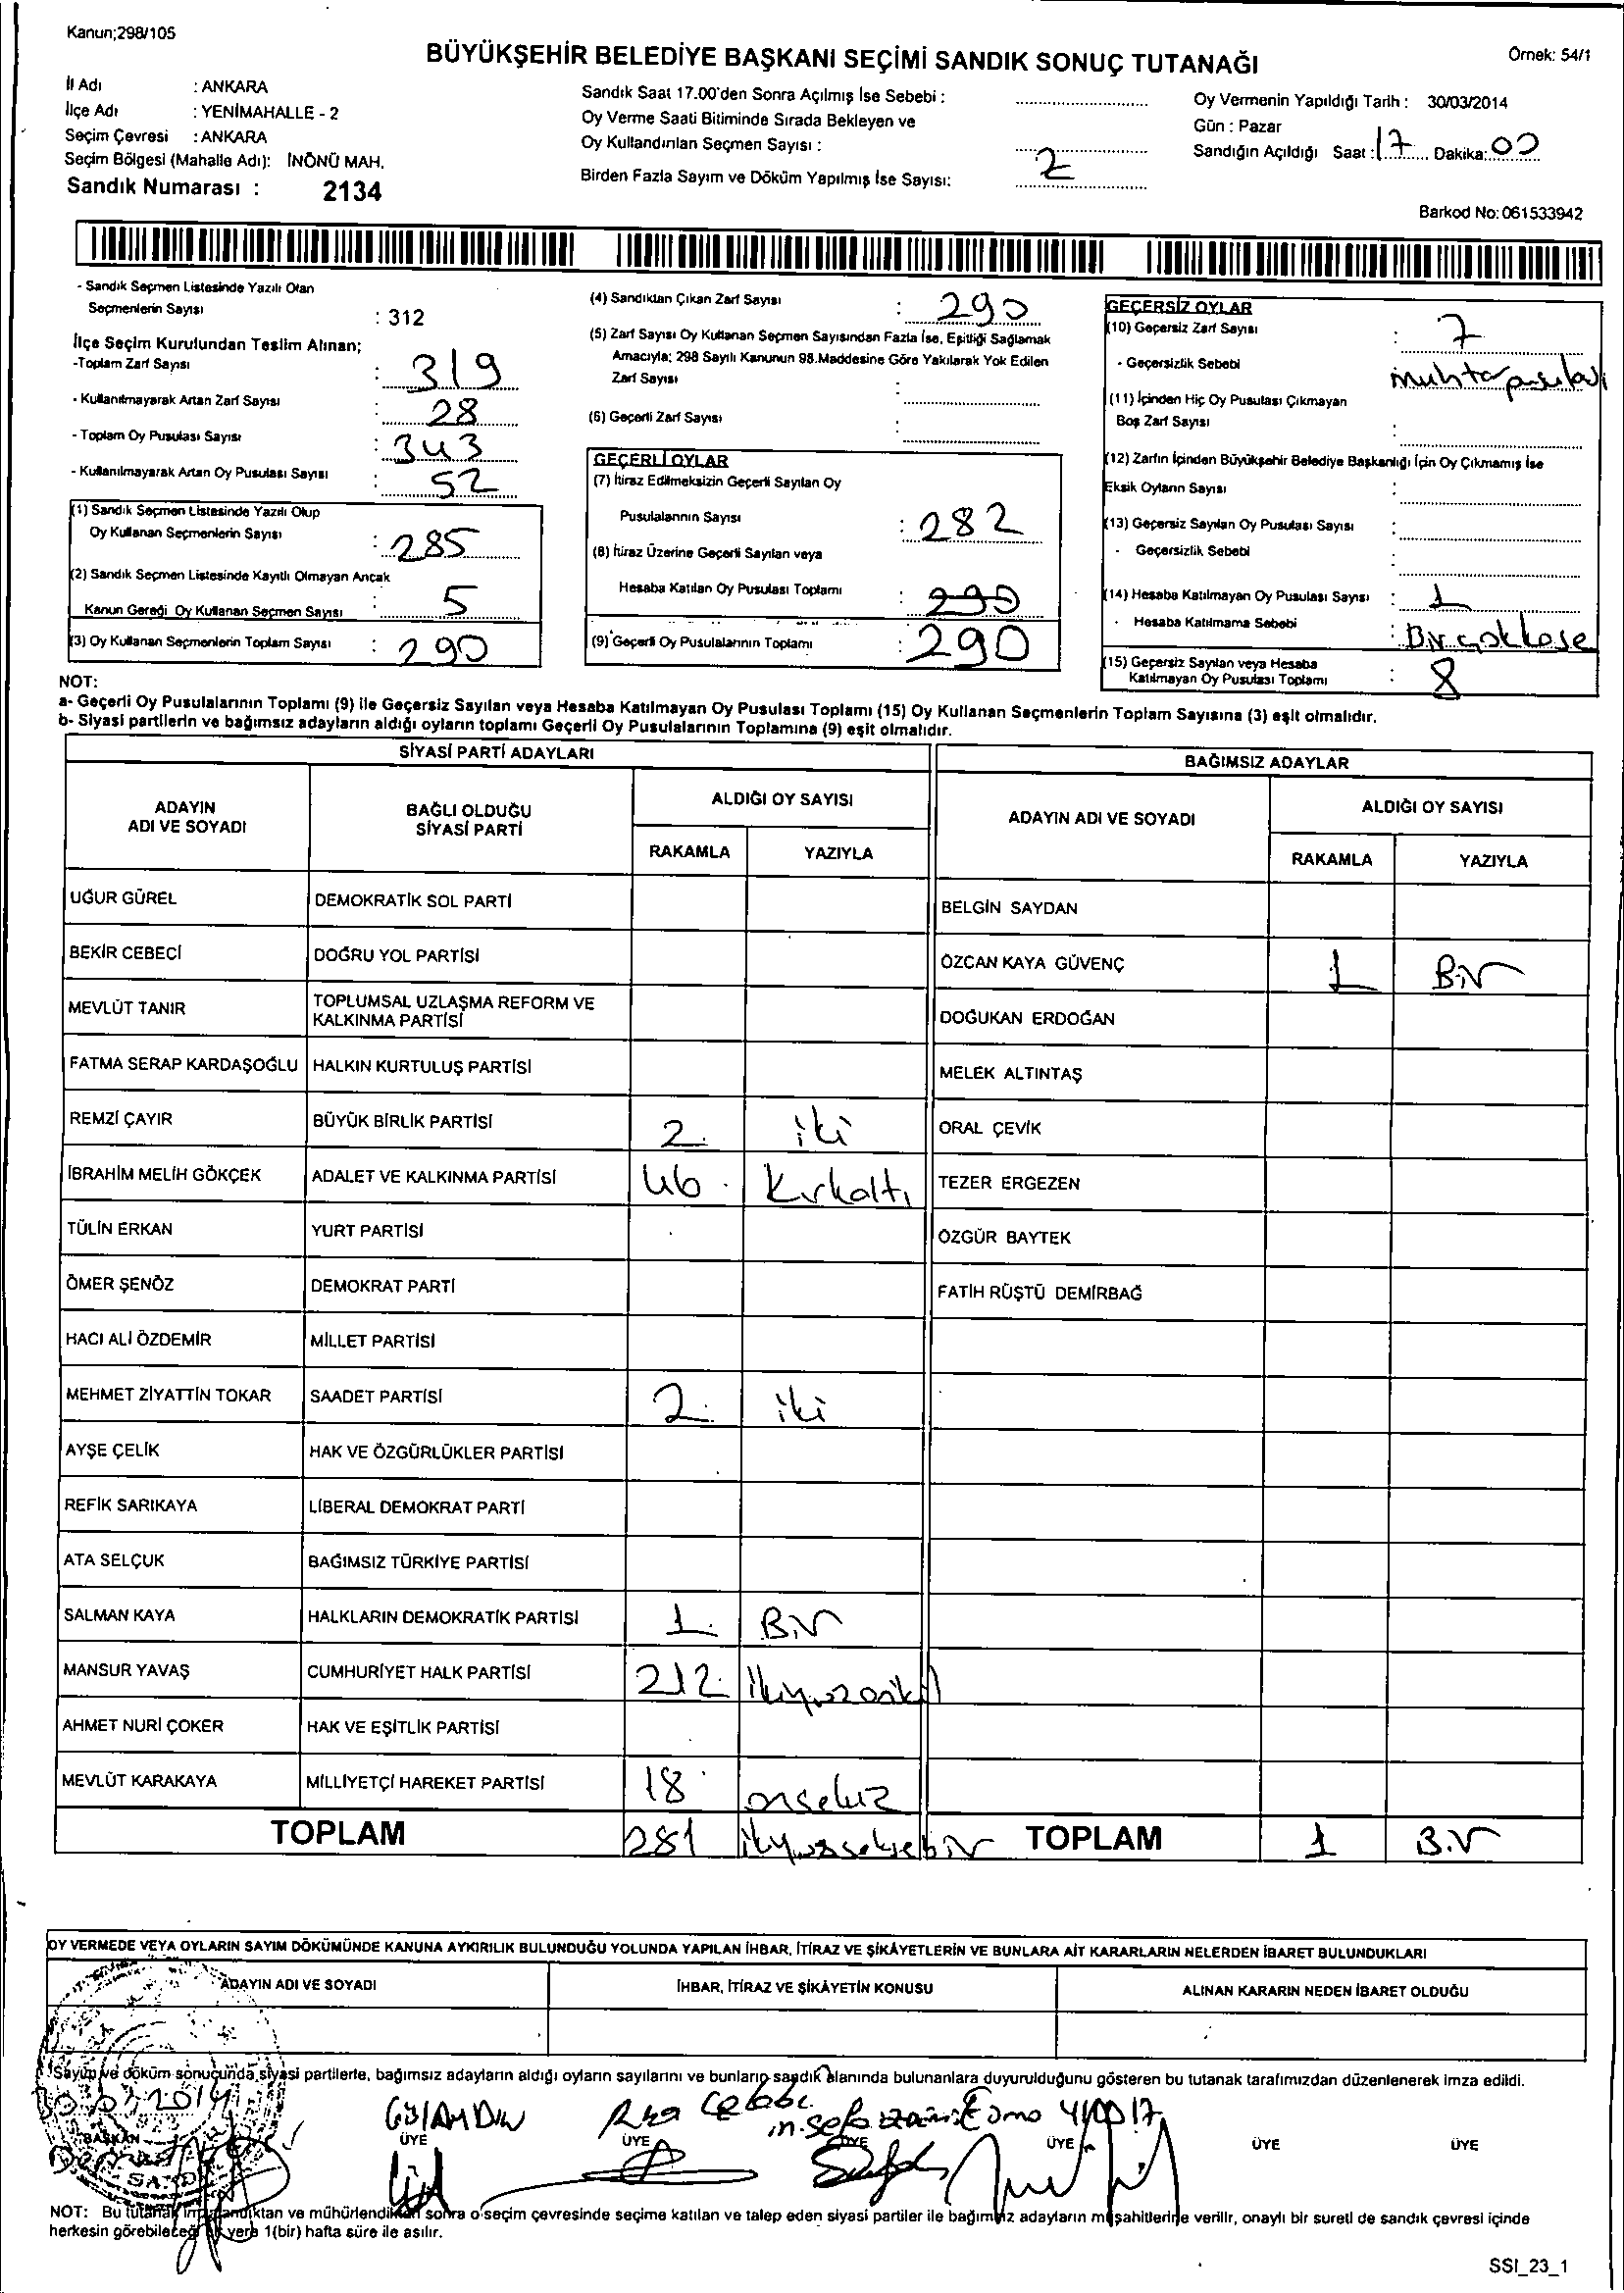 Kanun;298/105
BÜYÜKŞEHİR BELEDİYE BAŞKANI SEÇİMİ SANDIK SONUÇ TUTANAĞI
Örnek: 54/1
İl Adı : ANKARA
İlçe Adı : YENİMAHALLE - 2
Seçim Çevresi : ANKARA
Seçim Bölgesi (Mahalle Adı): İNÖNÜ MAH.
Sandık Numarası : 2134
Sandık Saat 17.00'den Sonra Açılmış İse Sebebi :
Oy Verme Saati Bitiminde Sırada Bekleyen ve
Oy Kullandırılan Seçmen Sayısı :
Birden Fazla Sayım ve Döküm Yapılmış İse Sayısı: 2
Oy Vermenin Yapıldığı Tarih : 30/03/2014
Gün : Pazar
Sandığın Açıldığı Saat : 17 Dakika: 00
Barkod No: 061533942
- Sandık Seçmen Listesinde Yazılı Olan
Seçmenlerin Sayısı : 312
İlçe Seçim Kurulundan Teslim Alınan;
-Toplam Zarf Sayısı : 319
- Kullanılmayarak Artan Zarf Sayısı : 28
- Toplam Oy Pusulası Sayısı : 343
- Kullanılmayarak Artan Oy Pusulası Sayısı : 52
(1) Sandık Seçmen Listesinde Yazılı Olup
Oy Kullanan Seçmenlerin Sayısı : 285
(2) Sandık Seçmen Listesinde Kayıtlı Olmayan Ancak
Kanun Gereği Oy Kullanan Seçmen Sayısı : 5
(3) Oy Kullanan Seçmenlerin Toplam Sayısı : 290
(4) Sandıktan Çıkan Zarf Sayısı : 290
(5) Zarf Sayısı Oy Kullanan Seçmen Sayısından Fazla İse, Eşitliği Sağlamak
Amacıyla; 298 Sayılı Kanunun 98.Maddesine Göre Yakılarak Yok Edilen
Zarf Sayısı :
(6) Geçerli Zarf Sayısı :
GEÇERLİ OYLAR
(7) İtiraz Edilmeksizin Geçerli Sayılan Oy
Pusulalarının Sayısı : 282
(8) İtiraz Üzerine Geçerli Sayılan veya
Hesaba Katılan Oy Pusulası Toplamı : 290
(9) Geçerli Oy Pusulalarının Toplamı : 290
GEÇERSİZ OYLAR
(10) Geçersiz Zarf Sayısı : 7
- Geçersizlik Sebebi
(11) İçinden Hiç Oy Pusulası Çıkmayan
Boş Zarf Sayısı :
(12) Zarfın İçinden Büyükşehir Belediye Başkanlığı İçin Oy Çıkmamış İse
Eksik Oyların Sayısı :
(13) Geçersiz Sayılan Oy Pusulası Sayısı :
- Geçersizlik Sebebi :
(14) Hesaba Katılmayan Oy Pusulası Sayısı : 1
- Hesaba Katılmama Sebebi :
(15) Geçersiz Sayılan veya Hesaba
Katılmayan Oy Pusulası Toplamı : 8
NOT:
a- Geçerli Oy Pusulalarının Toplamı (9) ile Geçersiz Sayılan veya Hesaba Katılmayan Oy Pusulası Toplamı (15) Oy Kullanan Seçmenlerin Toplam Sayısına (3) eşit olmalıdır.
b- Siyasi partilerin ve bağımsız adayların aldığı oyların toplamı Geçerli Oy Pusulalarının Toplamına (9) eşit olmalıdır.
SİYASİ PARTİ ADAYLARI
BAĞIMSIZ ADAYLAR
ADAYIN ADI VE SOYADI
BAĞLI OLDUĞU SİYASİ PARTİ
ALDIĞI OY SAYISI
RAKAMLA YAZIYLA
ADAYIN ADI VE SOYADI
ALDIĞI OY SAYISI
RAKAMLA YAZIYLA
UĞUR GÜREL DEMOKRATİK SOL PARTİ BELGİN SAYDAN
BEKİR CEBECİ DOĞRU YOL PARTİSİ ÖZCAN KAYA GÜVENÇ 1 Bir
MEVLÜT TANIR TOPLUMSAL UZLAŞMA REFORM VE KALKINMA PARTİSİ DOĞUKAN ERDOĞAN
FATMA SERAP KARDAŞOĞLU HALKIN KURTULUŞ PARTİSİ MELEK ALTINTAŞ
REMZİ ÇAYIR BÜYÜK BİRLİK PARTİSİ 2 iki ORAL ÇEVİK
İBRAHİM MELİH GÖKÇEK ADALET VE KALKINMA PARTİSİ 46 Kırkaltı TEZER ERGEZEN
TÜLİN ERKAN YURT PARTİSİ ÖZGÜR BAYTEK
ÖMER ŞENÖZ DEMOKRAT PARTİ FATİH RÜŞTÜ DEMİRBAĞ
HACI ALİ ÖZDEMİR MİLLET PARTİSİ
MEHMET ZİYATTİN TOKAR SAADET PARTİSİ 2 iki
AYŞE ÇELİK HAK VE ÖZGÜRLÜKLER PARTİSİ
REFİK SARIKAYA LİBERAL DEMOKRAT PARTİ
ATA SELÇUK BAĞIMSIZ TÜRKİYE PARTİSİ
SALMAN KAYA HALKLARIN DEMOKRATİK PARTİSİ 1 Bir
MANSUR YAVAŞ CUMHURİYET HALK PARTİSİ 212 ikiyüzoniki
AHMET NURİ ÇOKER HAK VE EŞİTLİK PARTİSİ
MEVLÜT KARAKAYA MİLLİYETÇİ HAREKET PARTİSİ 18 onsekiz
TOPLAM 281 ikiyüzseksebir TOPLAM 1 Bir
OY VERMEDE VEYA OYLARIN SAYIM DÖKÜMÜNDE KANUNA AYKIRILIK BULUNDUĞU YOLUNDA YAPILAN İHBAR, İTİRAZ VE ŞİKÂYETLERİN VE BUNLARA AİT KARARLARIN NELERDEN İBARET BULUNDUKLARI
ADAYIN ADI VE SOYADI
İHBAR, İTİRAZ VE ŞİKÂYETİN KONUSU
ALINAN KARARIN NEDEN İBARET OLDUĞU
Sayım ve döküm sonucunda siyasi partilerle, bağımsız adayların aldığı oyların sayılarını ve bunların sandık alanında bulunanlara duyurulduğunu gösteren bu tutanak tarafımızdan düzenlenerek imza edildi.
BAŞKAN ÜYE ÜYE ÜYE ÜYE ÜYE ÜYE
NOT: Bu tutanak imzalandıktan ve mühürlendikten sonra o seçim çevresinde seçime katılan ve talep eden siyasi partiler ile bağımsız adayların müşahitlerine verilir, onaylı bir sureti de sandık çevresi içinde
herkesin görebileceği bir yere 1(bir) hafta süre ile asılır.
SSI_23_1